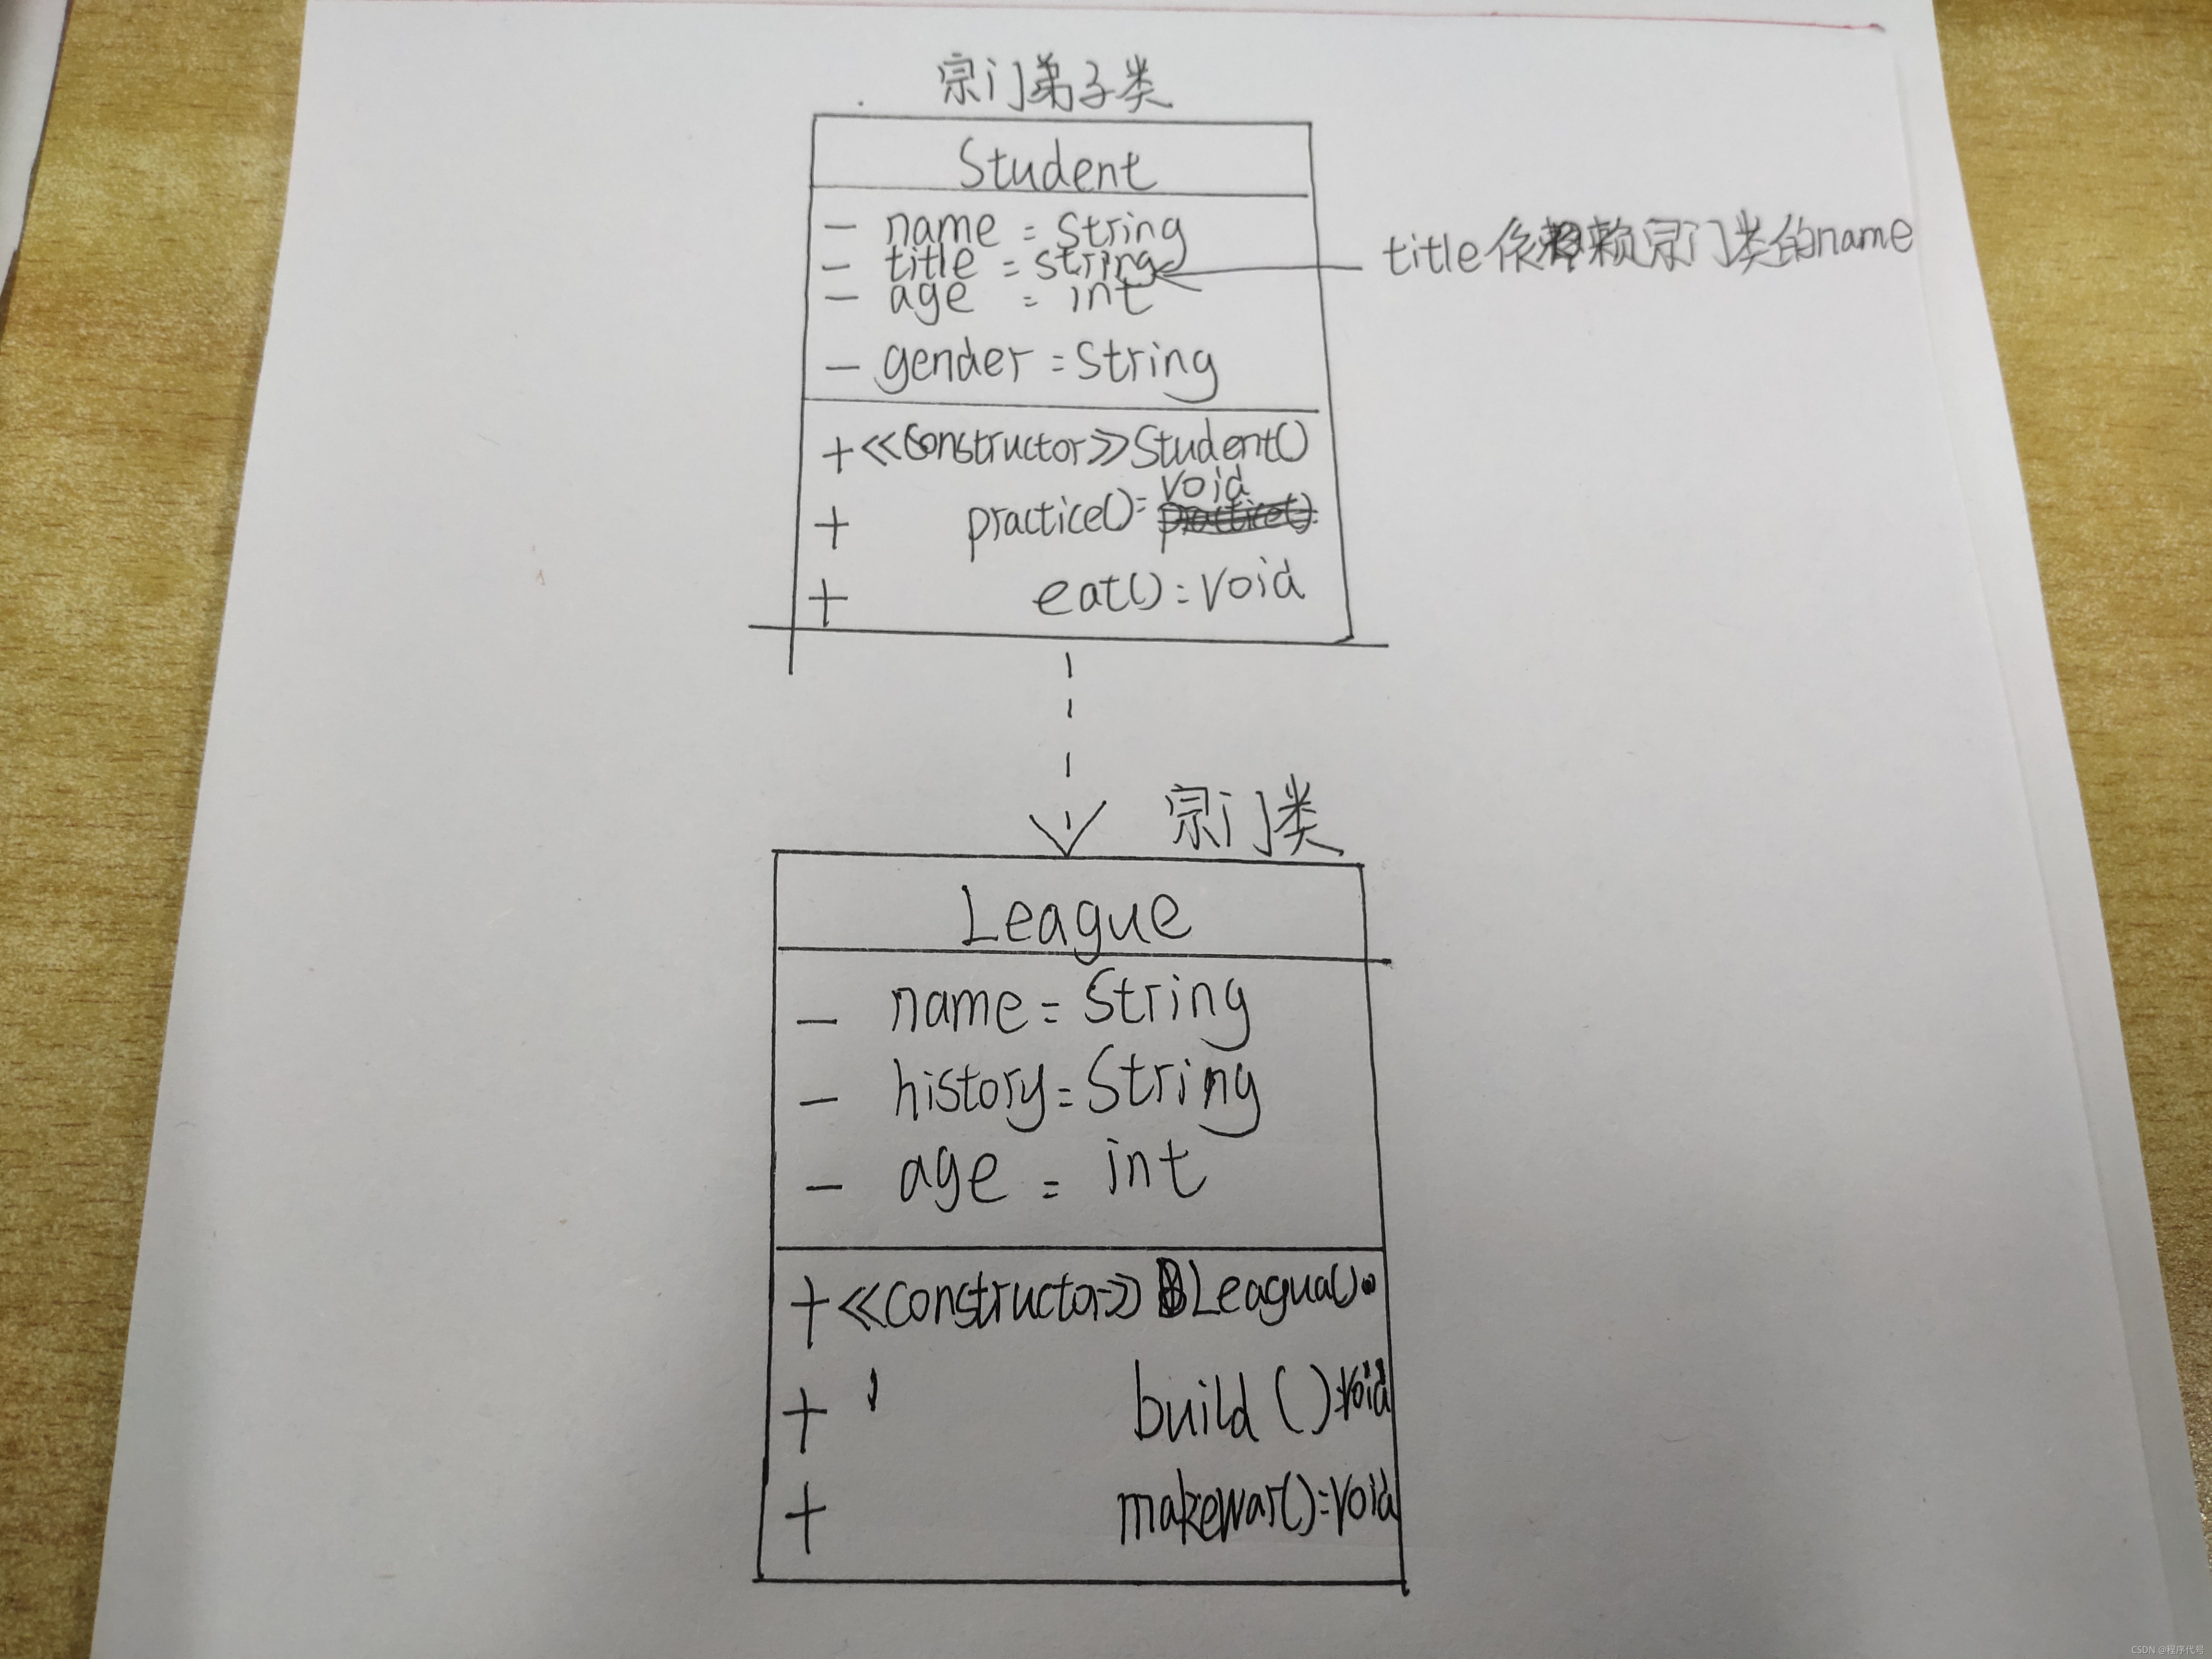 宗门弟子类
Student
- name = String
- title = String
- age = int
title依赖宗门类的name
- gender = String
+ <<Constructor>> Student()
+ practice() = void
+ eat() = void
宗门类
League
- name = String
- history = String
- age = int
+ <<Constructor>> Leagua()
+ build () : void
+ makewar() = void
CSDN @程序代号